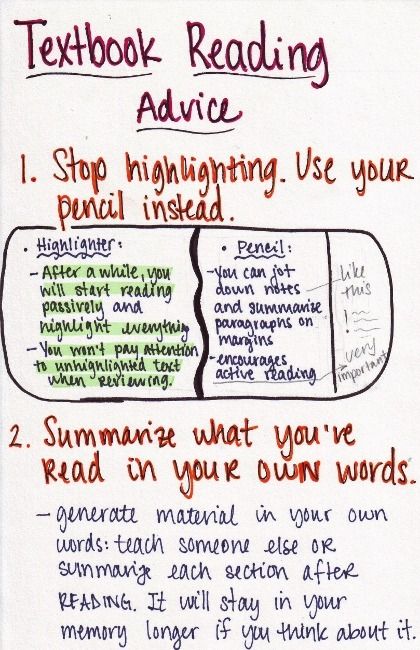 Textbook Reading
Advice
1. Stop highlighting. Use your
pencil instead.
• Highlighter:
- After a while, you
will start reading
passively and
highlight everything
- You won't pay attention
to unhighlighted text
when reviewing.
• Pencil:
- you can jot
down notes
and summarize
paragraphs on
margins
- encourages
active reading
like
this
!
very
important
2. Summarize what you've
Read in your own words.
- generate material in your own
words: teach someone else or
summarize each section after
READING. It will stay in your
memory longer if you think about it.